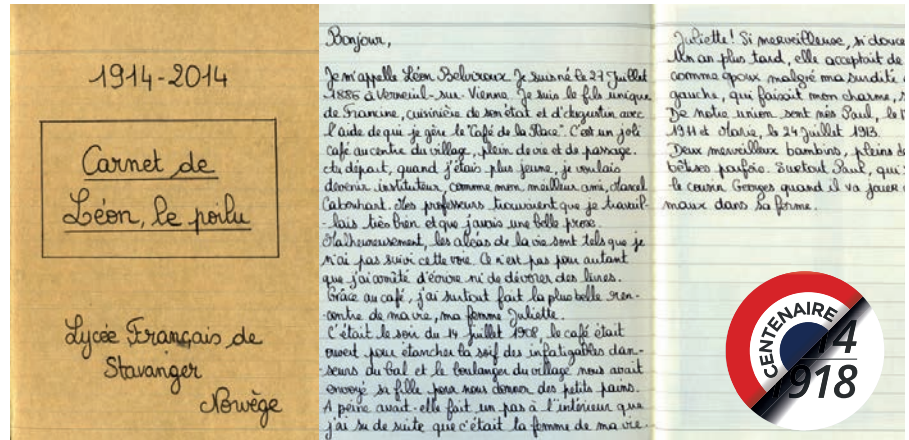 1914-2014
Carnet de
Léon, le poilu
Lycée Français de
Stavanger
Norvège
Bonjour,
Je m'appelle Léon Belviroux. Je suis né le 27 Juillet
1885 à Verneuil-sur-Vienne. Je suis le fils unique
de Francine, cuisinière de son état et d'Augustin avec
l'aide de qui je gère le "Café de la Place". C'est un joli
café au centre du village, plein de vie et de passage.
Au départ, quand j'étais plus jeune, je voulais
devenir instituteur, comme mon meilleur ami, Marcel
Mes professeurs trouvaient que je travail-
-lais très bien et que j'avais une belle prose.
Malheureusement, les aléas de la vie sont tels que je
n'ai pas suivi cette voie. Ce n'est pas pour autant
que j'ai arrêté d'écrire ni de dévorer des livres.
Grâce au café, j'ai surtout fait la plus belle ren-
-contre de ma vie, ma femme Juliette.
C'était le soir du 14 juillet 1908, le café était
ouvert pour étancher la soif des infatigables dan-
-seurs du bal et le boulanger du village nous avait
envoyé sa fille pour nous donner des petits pains.
A peine avait-elle fait un pas à l'intérieur que
j'ai su de suite que c'était la femme de ma vie.
Juliette! Si merveilleuse, si douce
Un an plus tard, elle acceptait de
comme époux malgré ma surdité
gauche, qui faisait mon charme,
De notre union sont nés Paul, le
1911 et Marie, le 24 juillet 1913.
Deux merveilleux bambins, pleins de
bêtises parfois. Surtout Paul, qui
le cousin Georges quand il va jouer
maux dans sa ferme.
CENTENAIRE
14
1918